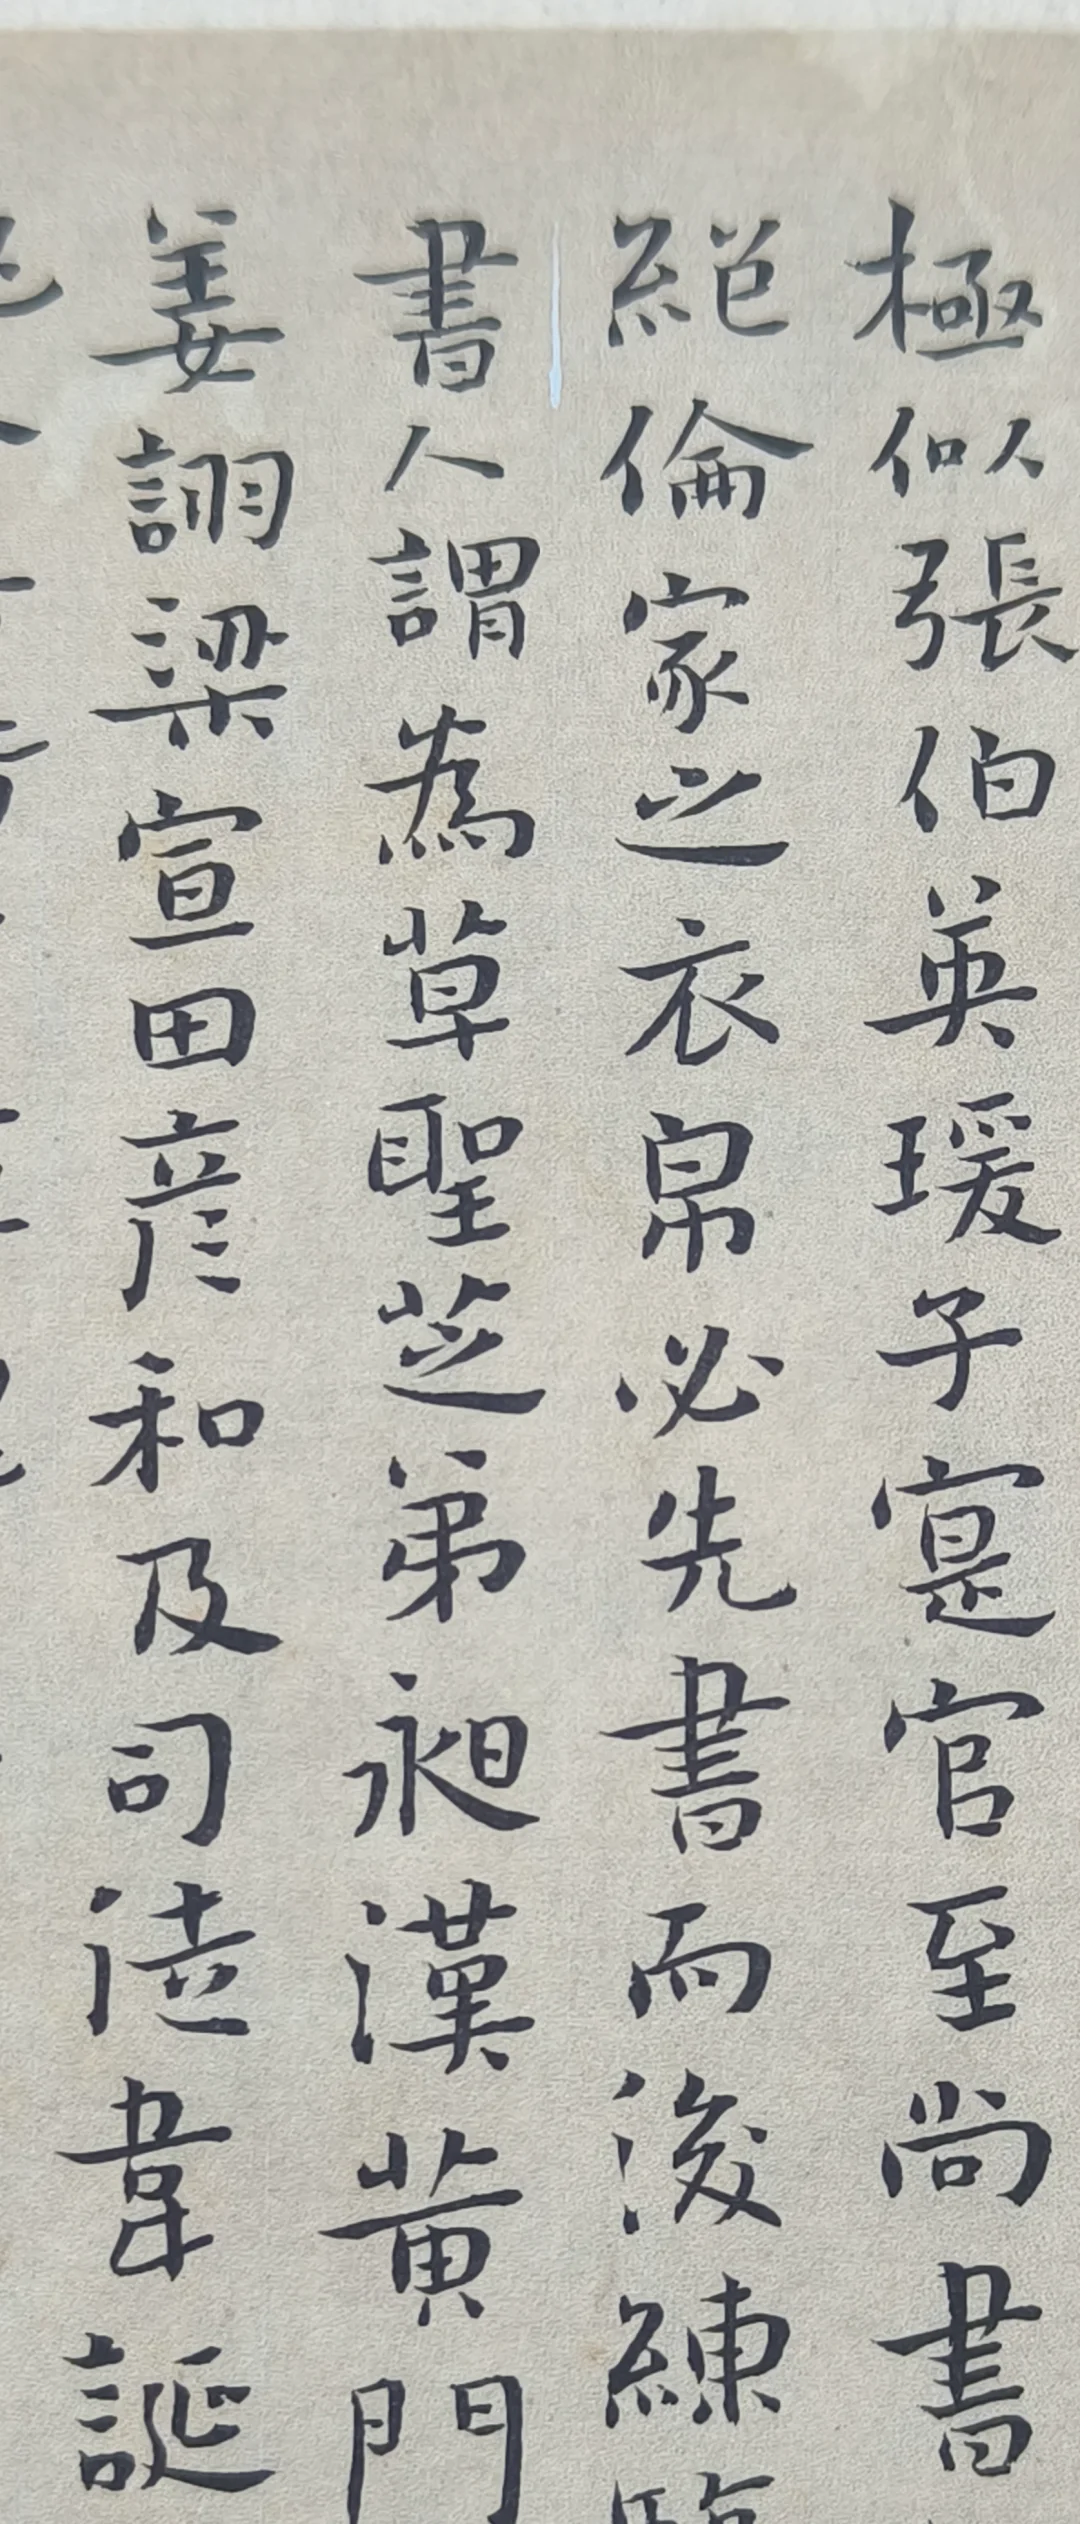 極似張伯英瑗子寔官至尚書
絕倫家之衣帛必先書而後練臨
書人謂為草聖芝弟昶漢黃門
姜詡梁宣田彥和及司徒韋誕